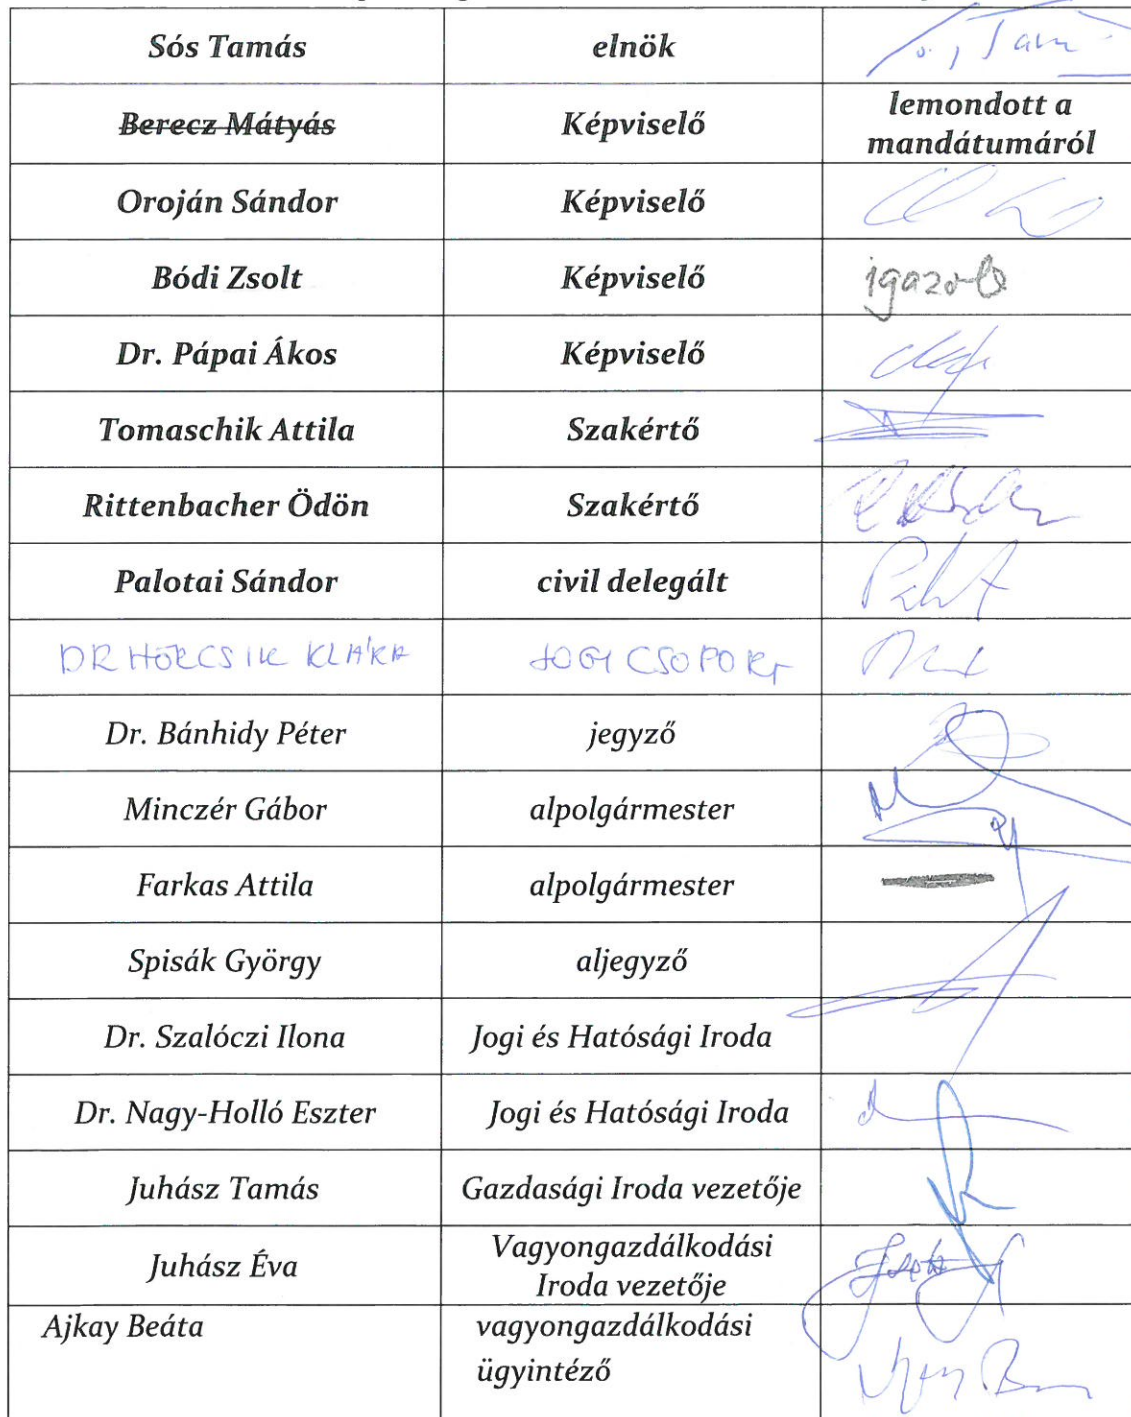 Sós Tamás elnök
Berecz Mátyás Képviselő lemondott a
mandátumáról
Oroján Sándor Képviselő
Bódi Zsolt Képviselő igazolt
Dr. Pápai Ákos Képviselő
Tomaschik Attila Szakértő
Rittenbacher Ödön Szakértő
Palotai Sándor civil delegált
DR HÖRCSIK KLÁRA JOGI CSOPORT
Dr. Bánhidy Péter jegyző
Minczér Gábor alpolgármester
Farkas Attila alpolgármester
Spisák György aljegyző
Dr. Szalóczi Ilona Jogi és Hatósági Iroda
Dr. Nagy-Holló Eszter Jogi és Hatósági Iroda
Juhász Tamás Gazdasági Iroda vezetője
Juhász Éva Vagyongazdálkodási
Iroda vezetője
Ajkay Beáta vagyongazdálkodási
ügyintéző